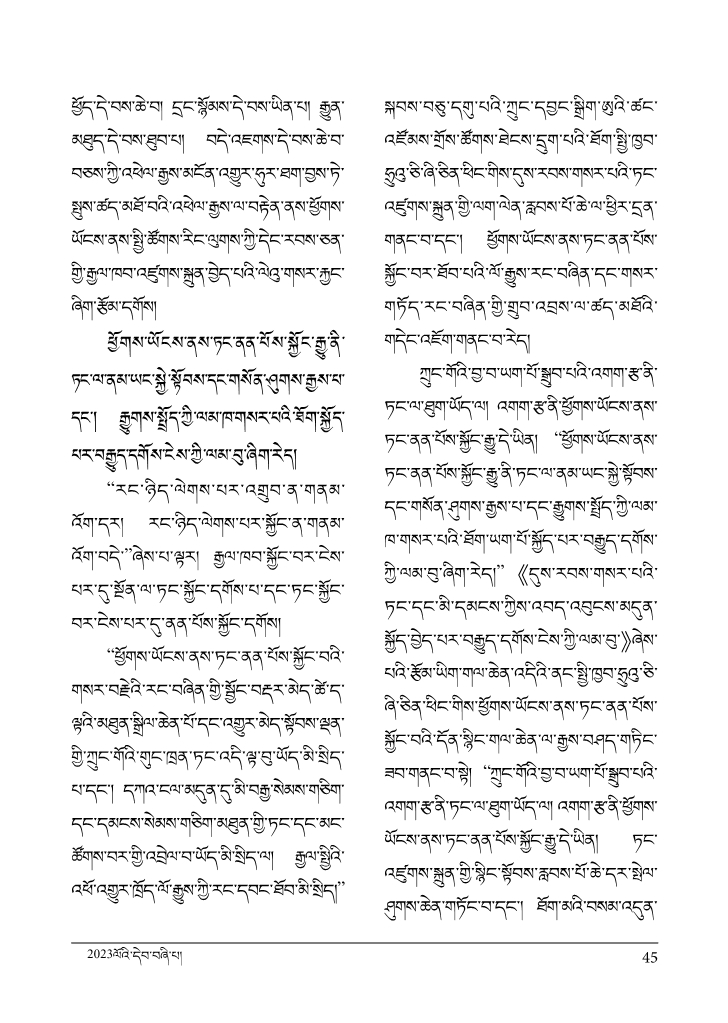 ཕྱོད་དེ་བས་ཆེ་བ། དྲང་སྙོམས་དེ་བས་ཡིན་པ། རྒྱུན་
མཐུད་དེ་བས་ཐུབ་པ། བདེ་འཇགས་དེ་བས་ཆེ་བ་
བཅས་ཀྱི་འཕེལ་རྒྱས་མངོན་འགྱུར་ཧུར་ཐག་བྱས་ཏེ་
སྤུས་ཚད་མཐོ་བའི་འཕེལ་རྒྱས་ལ་བརྟེན་ནས་ཕྱོགས་
ཡོངས་ནས་སྤྱི་ཚོགས་རིང་ལུགས་ཀྱི་དེང་རབས་ཅན་
གྱི་རྒྱལ་ཁབ་འཛུགས་སྐྲུན་བྱེད་པའི་ལེའུ་གསར་རྐྱང་
ཞིག་རྩོམ་དགོས།
ཕྱོགས་ཡོངས་ནས་ཏང་ནན་པོས་སྐྱོང་རྒྱུ་ནི་
ཏང་ལ་ནམ་ཡང་སྐྱེ་སྟོབས་དང་གསོན་ཤུགས་རྒྱས་པ་
དང་། རྒྱུགས་སྤྲོད་ཀྱི་ལམ་ཁ་གསར་པའི་ཐོག་སྐྱོད་
པར་བརྒྱུད་དགོས་ངེས་ཀྱི་ལམ་བུ་ཞིག་རེད།
“རང་ཉིད་ལེགས་པར་འགྲུབ་ན་གནམ་
འོག་དར། རང་ཉིད་ལེགས་པར་སྐྱོང་ན་གནམ་
འོག་བདེ་”ཞེས་པ་ལྟར། རྒྱལ་ཁབ་སྐྱོང་བར་ངེས་
པར་དུ་སྔོན་ལ་ཏང་སྐྱོང་དགོས་པ་དང་ཏང་སྐྱོང་
བར་ངེས་པར་དུ་ནན་པོས་སྐྱོང་དགོས།
“ཕྱོགས་ཡོངས་ནས་ཏང་ནན་པོས་སྐྱོང་བའི་
གསར་བརྗེའི་རང་བཞིན་གྱི་སྦྱོང་བརྡར་མེད་ཚེ་ད་
ལྟའི་མཐུན་སྒྲིལ་ཆེན་པོ་དང་འགྱུར་མེད་སྟོབས་ལྡན་
གྱི་ཀྲུང་གོའི་གུང་ཁྲན་ཏང་འདི་ལྟ་བུ་ཡོད་མི་སྲིད་
པ་དང་། དཀའ་ངལ་མདུན་དུ་མི་བརྒྱ་སེམས་གཅིག་
དང་དམངས་སེམས་གཅིག་མཐུན་གྱི་ཏང་དང་མང་
ཚོགས་བར་གྱི་འབྲེལ་བ་ཡོད་མི་སྲིད་ལ། རྒྱལ་སྤྱིའི་
འཕོ་འགྱུར་ཁྲོད་ལོ་རྒྱུས་ཀྱི་རང་དབང་ཐོབ་མི་སྲིད།”
སྐབས་བཅུ་དགུ་པའི་ཀྲུང་དབྱང་སྒྲིག་ཨུའི་ཚང་
འཛོམས་གྲོས་ཚོགས་ཐེངས་དྲུག་པའི་ཐོག་སྤྱི་ཁྱབ་
ཧྲུའུ་ཅི་ཞི་ཅིན་ཕིང་གིས་དུས་རབས་གསར་པའི་ཏང་
འཛུགས་སྐྲུན་གྱི་ལག་ལེན་རླབས་པོ་ཆེ་ལ་ཕྱིར་དྲན་
གནང་བ་དང་། ཕྱོགས་ཡོངས་ནས་ཏང་ནན་པོས་
སྐྱོང་བར་ཐོབ་པའི་ལོ་རྒྱུས་རང་བཞིན་དང་གསར་
གཏོད་རང་བཞིན་གྱི་གྲུབ་འབྲས་ལ་ཚད་མཐོའི་
གདེང་འཇོག་གནང་བ་རེད།
ཀྲུང་གོའི་བྱ་བ་ཡག་པོ་སྒྲུབ་པའི་འགག་རྩ་ནི་
ཏང་ལ་ཐུག་ཡོད་ལ། འགག་རྩ་ནི་ཕྱོགས་ཡོངས་ནས་
ཏང་ནན་པོས་སྐྱོང་རྒྱུ་དེ་ཡིན། “ཕྱོགས་ཡོངས་ནས་
ཏང་ནན་པོས་སྐྱོང་རྒྱུ་ནི་ཏང་ལ་ནམ་ཡང་སྐྱེ་སྟོབས་
དང་གསོན་ཤུགས་རྒྱས་པ་དང་རྒྱུགས་སྤྲོད་ཀྱི་ལམ་
ཁ་གསར་པའི་ཐོག་ཡག་པོ་སྐྱོད་པར་བརྒྱུད་དགོས་
ཀྱི་ལམ་བུ་ཞིག་རེད།” 《དུས་རབས་གསར་པའི་
ཏང་དང་མི་དམངས་ཀྱིས་འབད་འབུངས་མདུན་
སྐྱོད་བྱེད་པར་བརྒྱུད་དགོས་ངེས་ཀྱི་ལམ་བུ་》ཞེས་
པའི་རྩོམ་ཡིག་གལ་ཆེན་འདིའི་ནང་སྤྱི་ཁྱབ་ཧྲུའུ་ཅི་
ཞི་ཅིན་ཕིང་གིས་ཕྱོགས་ཡོངས་ནས་ཏང་ནན་པོས་
སྐྱོང་བའི་དོན་སྙིང་གལ་ཆེན་ལ་རྒྱས་བཤད་གཏིང་
ཟབ་གནང་བ་སྟེ། “ཀྲུང་གོའི་བྱ་བ་ཡག་པོ་སྒྲུབ་པའི་
འགག་རྩ་ནི་ཏང་ལ་ཐུག་ཡོད་ལ། འགག་རྩ་ནི་ཕྱོགས་
ཡོངས་ནས་ཏང་ནན་པོས་སྐྱོང་རྒྱུ་དེ་ཡིན། ཏང་
འཛུགས་སྐྲུན་གྱི་སྙིང་སྟོབས་རླབས་པོ་ཆེ་དར་སྤེལ་
ཤུགས་ཆེན་གཏོང་བ་དང་། ཐོག་མའི་བསམ་འདུན་
2023ལོའི་དེབ་བཞི་པ།
45